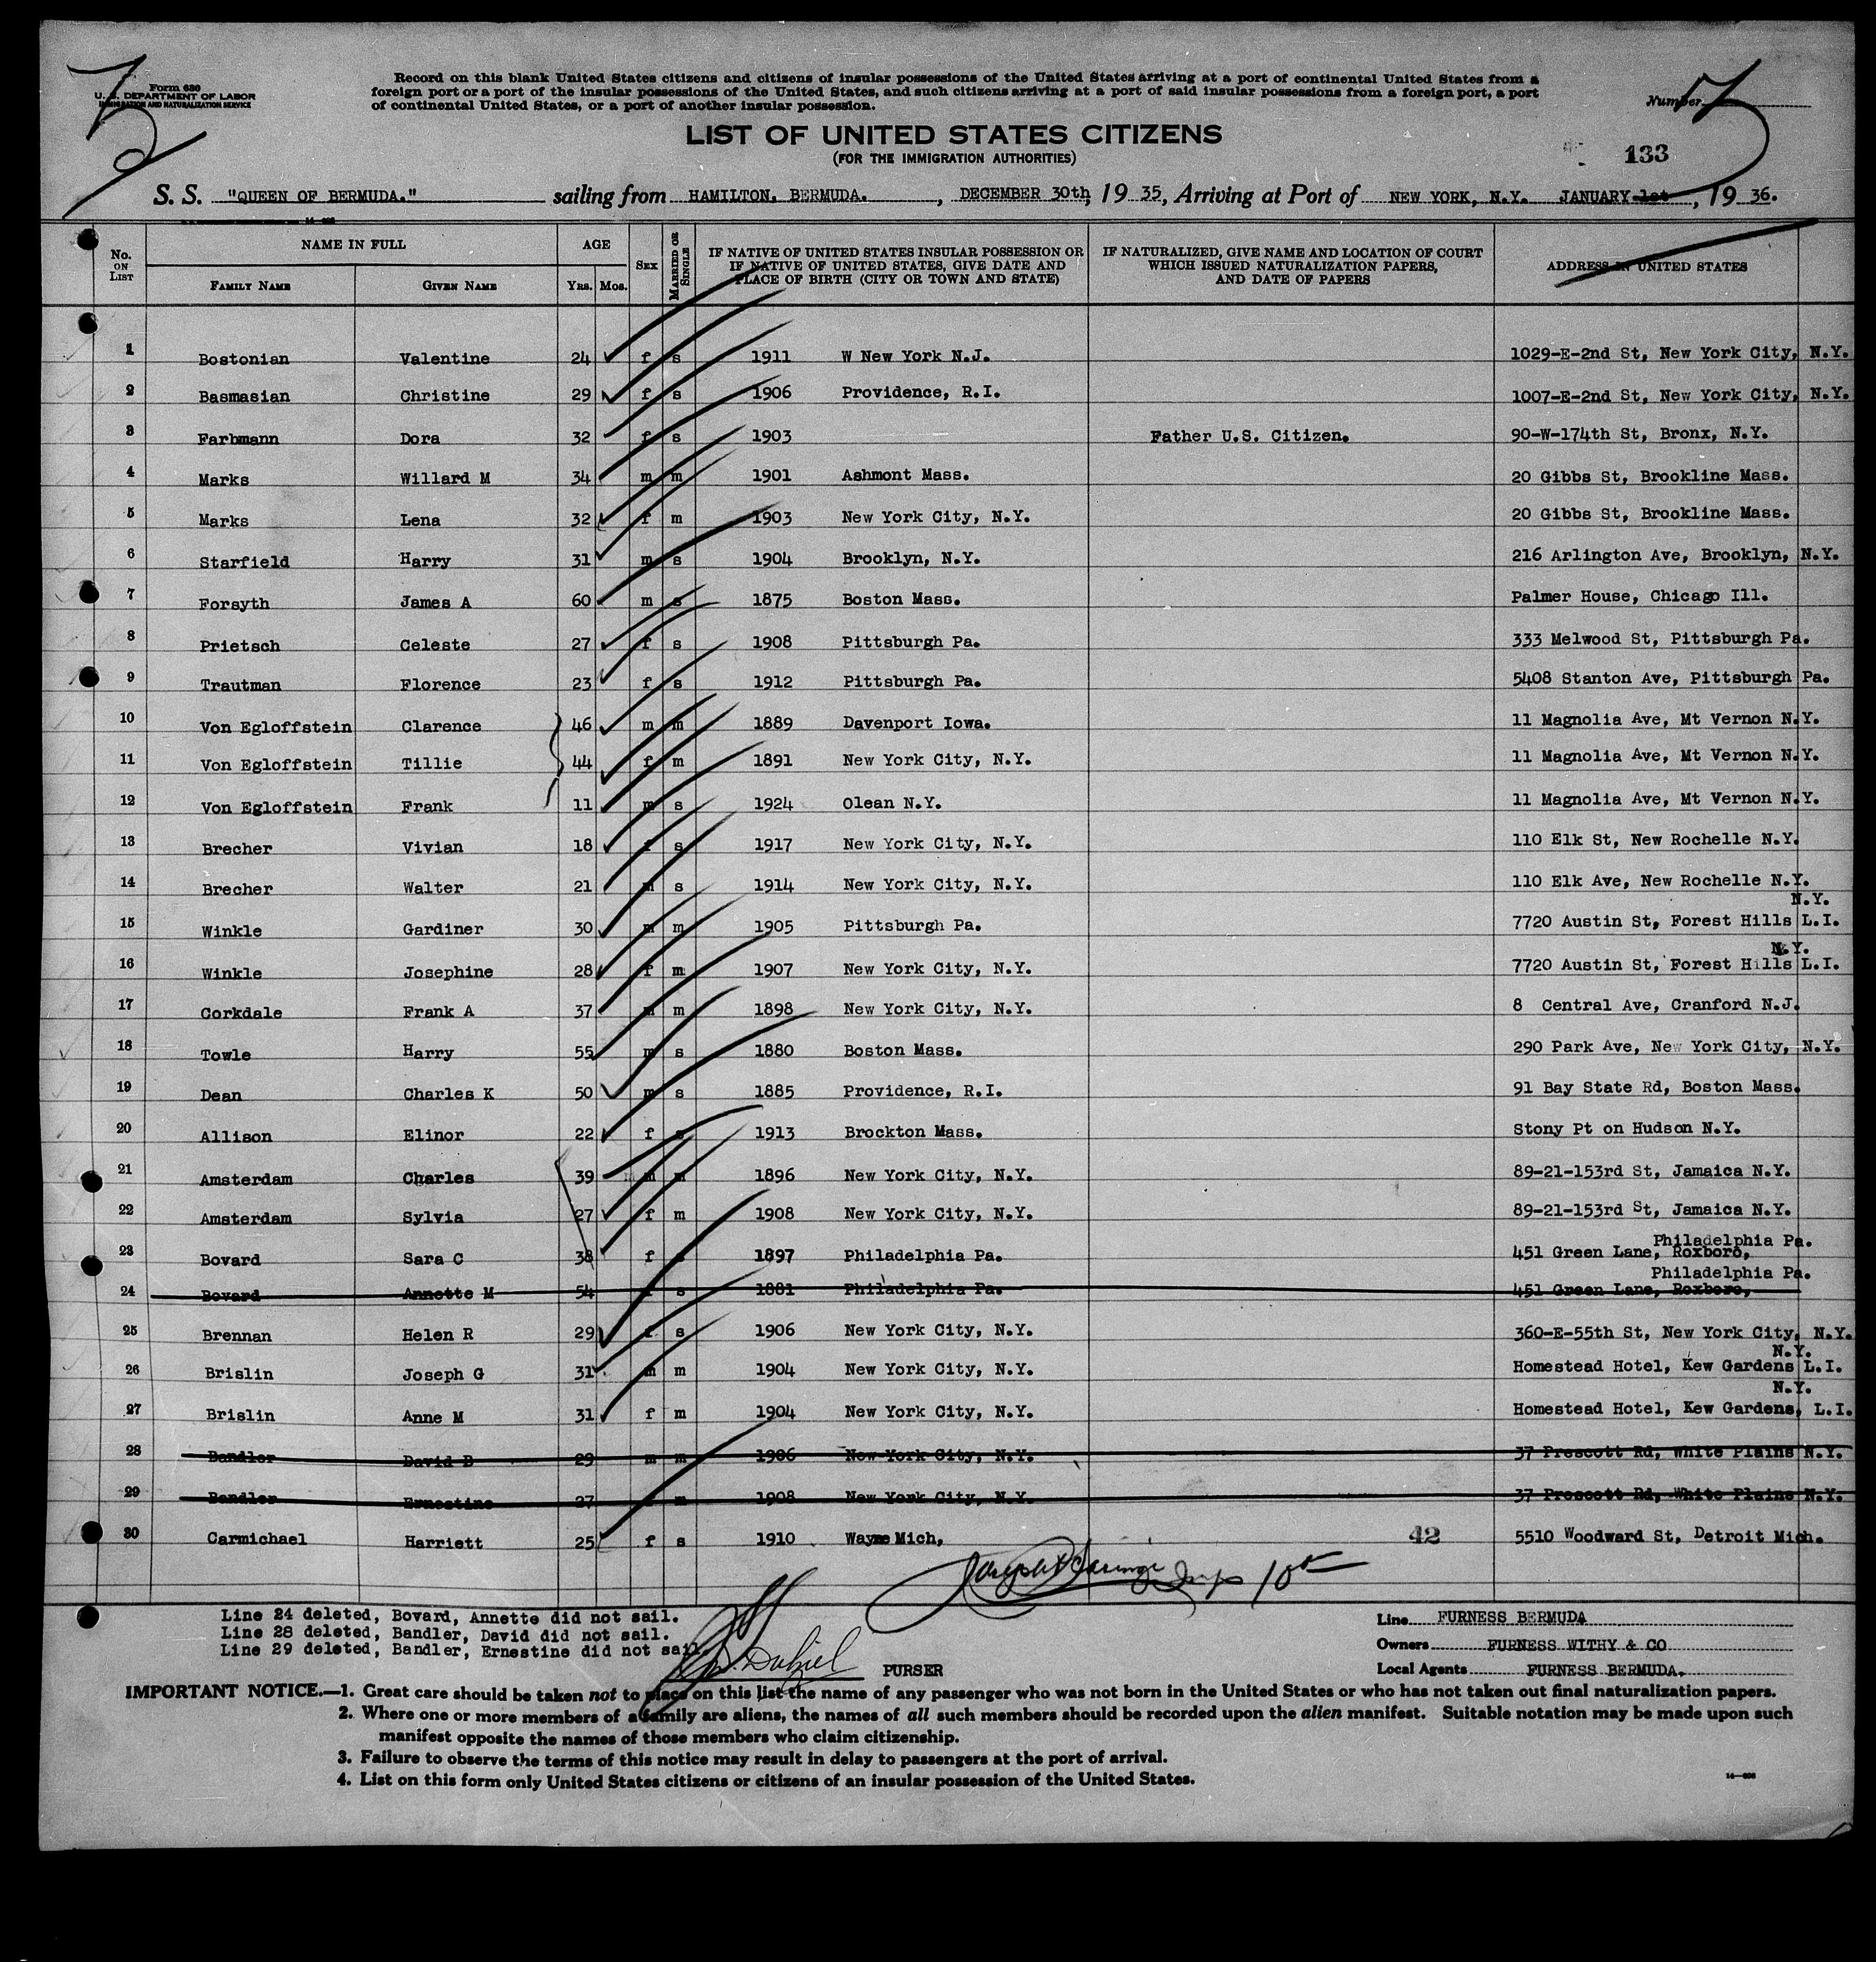 Form 630
U. S. DEPARTMENT OF LABOR
IMMIGRATION AND NATURALIZATION SERVICE
Record on this blank United States citizens and citizens of insular possessions of the United States arriving at a port of continental United States from a
foreign port or a port of the insular possessions of the United States, and such citizens arriving at a port of said insular possessions from a foreign port, a port
of continental United States, or a port of another insular possession.
Number
LIST OF UNITED STATES CITIZENS
(FOR THE IMMIGRATION AUTHORITIES)
133
S. S. "QUEEN OF BERMUDA." sailing from HAMILTON, BERMUDA. , DECEMBER 30th, 19 35, Arriving at Port of NEW YORK, N.Y. JANUARY 1st , 19 36.
No. ON LIST NAME IN FULL AGE SEX MARRIED OR SINGLE IF NATIVE OF UNITED STATES INSULAR POSSESSION OR IF NATIVE OF UNITED STATES, GIVE DATE AND PLACE OF BIRTH (CITY OR TOWN AND STATE) IF NATURALIZED, GIVE NAME AND LOCATION OF COURT WHICH ISSUED NATURALIZATION PAPERS, AND DATE OF PAPERS ADDRESS IN UNITED STATES
FAMILY NAME GIVEN NAME YRS. MOS.
1 Bostonian Valentine 24 f s 1911 W New York N.J. 1029-E-2nd St, New York City, N.Y.
2 Basmasian Christine 29 f s 1906 Providence, R.I. 1007-E-2nd St, New York City, N.Y.
3 Farbmann Dora 32 f s 1903 Father U.S. Citizen. 90-W-174th St, Bronx, N.Y.
4 Marks Willard M 34 m m 1901 Ashmont Mass. 20 Gibbs St, Brookline Mass.
5 Marks Lena 32 f m 1903 New York City, N.Y. 20 Gibbs St, Brookline Mass.
6 Starfield Harry 31 m s 1904 Brooklyn, N.Y. 216 Arlington Ave, Brooklyn, N.Y.
7 Forsyth James A 60 m s 1875 Boston Mass. Palmer House, Chicago Ill.
8 Prietsch Celeste 27 f s 1908 Pittsburgh Pa. 333 Melwood St, Pittsburgh Pa.
9 Trautman Florence 23 f s 1912 Pittsburgh Pa. 5408 Stanton Ave, Pittsburgh Pa.
10 Von Egloffstein Clarence 46 m m 1889 Davenport Iowa. 11 Magnolia Ave, Mt Vernon N.Y.
11 Von Egloffstein Tillie 44 f m 1891 New York City, N.Y. 11 Magnolia Ave, Mt Vernon N.Y.
12 Von Egloffstein Frank 11 m s 1924 Olean N.Y. 11 Magnolia Ave, Mt Vernon N.Y.
13 Brecher Vivian 18 f s 1917 New York City, N.Y. 110 Elk St, New Rochelle N.Y.
14 Brecher Walter 21 m s 1914 New York City, N.Y. 110 Elk Ave, New Rochelle N.Y.
N.Y.
15 Winkle Gardiner 30 m m 1905 Pittsburgh Pa. 7720 Austin St, Forest Hills L.I.
N.Y.
16 Winkle Josephine 28 f m 1907 New York City, N.Y. 7720 Austin St, Forest Hills L.I.
17 Corkdale Frank A 37 m m 1898 New York City, N.Y. 8 Central Ave, Cranford N.J.
18 Towle Harry 55 m s 1880 Boston Mass. 290 Park Ave, New York City, N.Y.
19 Dean Charles K 50 m s 1885 Providence, R.I. 91 Bay State Rd, Boston Mass.
20 Allison Elinor 22 f s 1913 Brockton Mass. Stony Pt on Hudson N.Y.
21 Amsterdam Charles 39 m m 1896 New York City, N.Y. 89-21-153rd St, Jamaica N.Y.
22 Amsterdam Sylvia 27 f m 1908 New York City, N.Y. 89-21-153rd St, Jamaica N.Y.
Philadelphia Pa.
23 Bovard Sara C 38 f s 1897 Philadelphia Pa. 451 Green Lane, Roxboro,
Philadelphia Pa.
24 Bovard Annette M 54 f s 1881 Philadelphia Pa. 451 Green Lane, Roxboro,
25 Brennan Helen R 29 f s 1906 New York City, N.Y. 360-E-55th St, New York City, N.Y.
N.Y.
26 Brislin Joseph G 31 m m 1904 New York City, N.Y. Homestead Hotel, Kew Gardens L.I.
N.Y.
27 Brislin Anne M 31 f m 1904 New York City, N.Y. Homestead Hotel, Kew Gardens, L.I.
28 Bandler David B 29 m m 1906 New York City, N.Y. 37 Prescott Rd, White Plains N.Y.
29 Bandler Ernestine 27 f m 1908 New York City, N.Y. 37 Prescott Rd, White Plains N.Y.
30 Carmichael Harriett 25 f s 1910 Wayne Mich, 42 5510 Woodward St, Detroit Mich.
Line 24 deleted, Bovard, Annette did not sail.
Line 28 deleted, Bandler, David did not sail.
Line 29 deleted, Bandler, Ernestine did not sail.
PURSER
Line FURNESS BERMUDA
Owners FURNESS WITHY & CO
Local Agents FURNESS BERMUDA.
IMPORTANT NOTICE.—1. Great care should be taken not to place on this list the name of any passenger who was not born in the United States or who has not taken out final naturalization papers.
2. Where one or more members of a family are aliens, the names of all such members should be recorded upon the alien manifest. Suitable notation may be made upon such
manifest opposite the names of those members who claim citizenship.
3. Failure to observe the terms of this notice may result in delay to passengers at the port of arrival.
4. List on this form only United States citizens or citizens of an insular possession of the United States.